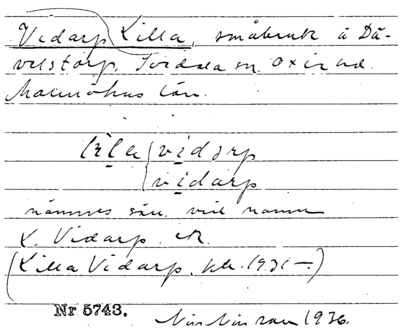 Vidarp, Lilla, småbruk å Dä-
velstorp, Tirdala sn. Oxie hd
Malmöhus län.
lila vidarp
vidarp
nämnes säll. vid namn
L. Vidarp.
(Lilla Vidarp, kk. 1931 —)
Nr 5743.
1936.